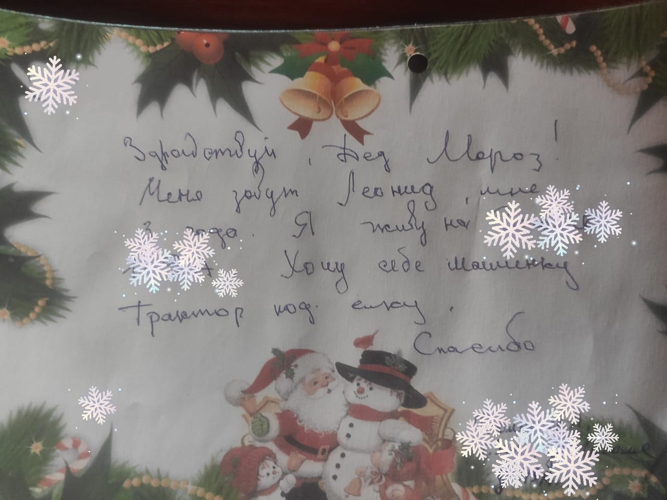 Здравствуй, Дед Мороз!
Меня зовут Леонид, мне
3 года. Я живу на
Хочу себе машинку
Трактор под ёлку.
Спасибо